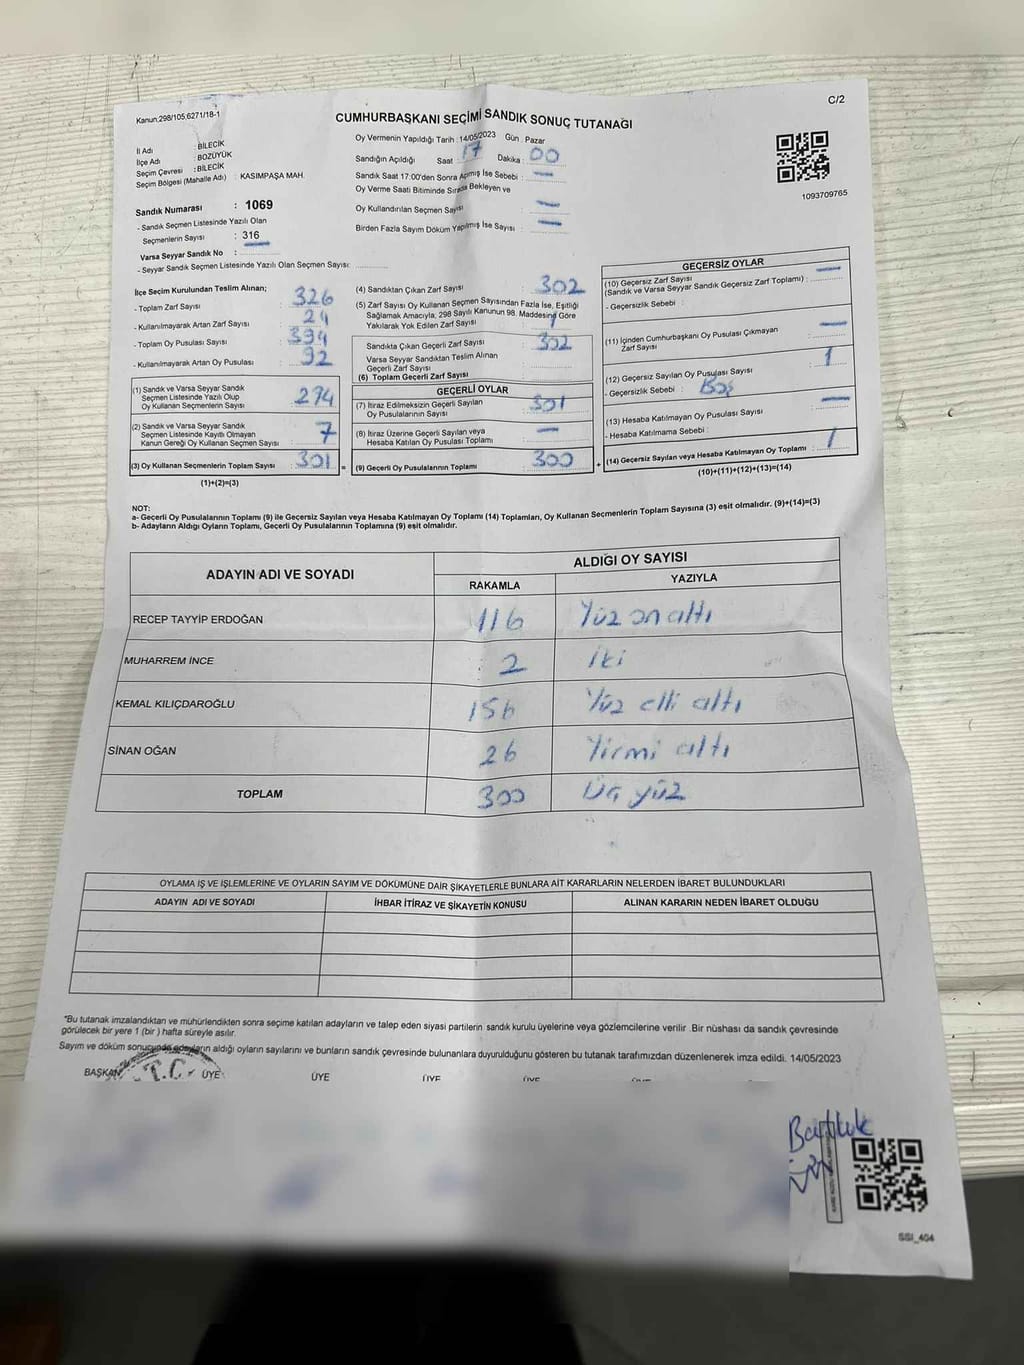 C/2
Kanun:298/105;6271/18-1
CUMHURBAŞKANI SEÇİMİ SANDIK SONUÇ TUTANAĞI
İl Adı : BİLECİK
İlçe Adı : BOZÜYÜK
Seçim Çevresi : BİLECİK
Seçim Bölgesi (Mahalle Adı) : KASIMPAŞA MAH.
Oy Vermenin Yapıldığı Tarih : 14/05/2023 Gün : Pazar
Sandığın Açıldığı Saat : 17 Dakika : 00
Sandık Saat 17:00'den Sonra Açılmış İse Sebebi : —
Oy Verme Saati Bitiminde Sırada Bekleyen ve
Oy Kullandırılan Seçmen Sayısı : —
Birden Fazla Sayım Döküm Yapılmış İse Sayısı : —
1093709765
Sandık Numarası : 1069
- Sandık Seçmen Listesinde Yazılı Olan
Seçmenlerin Sayısı : 316
Varsa Seyyar Sandık No :
- Seyyar Sandık Seçmen Listesinde Yazılı Olan Seçmen Sayısı:
İlçe Seçim Kurulundan Teslim Alınan;
- Toplam Zarf Sayısı : 326
- Kullanılmayarak Artan Zarf Sayısı : 24
- Toplam Oy Pusulası Sayısı : 394
- Kullanılmayarak Artan Oy Pusulası : 92
(1) Sandık ve Varsa Seyyar Sandık
Seçmen Listesinde Yazılı Olup
Oy Kullanan Seçmenlerin Sayısı : 294
(2) Sandık ve Varsa Seyyar Sandık
Seçmen Listesinde Kayıtlı Olmayan
Kanun Gereği Oy Kullanan Seçmen Sayısı : 7
(3) Oy Kullanan Seçmenlerin Toplam Sayısı : 301 =
(1)+(2)=(3)
(4) Sandıktan Çıkan Zarf Sayısı : 302
(5) Zarf Sayısı Oy Kullanan Seçmen Sayısından Fazla İse, Eşitliği
Sağlamak Amacıyla, 298 Sayılı Kanunun 98. Maddesine Göre
Yakılarak Yok Edilen Zarf Sayısı : 1
Sandıkta Çıkan Geçerli Zarf Sayısı : 302
Varsa Seyyar Sandıktan Teslim Alınan
Geçerli Zarf Sayısı :
(6) Toplam Geçerli Zarf Sayısı :
GEÇERLİ OYLAR
(7) İtiraz Edilmeksizin Geçerli Sayılan
Oy Pusulalarının Sayısı : 301
(8) İtiraz Üzerine Geçerli Sayılan veya
Hesaba Katılan Oy Pusulası Toplamı : —
(9) Geçerli Oy Pusulalarının Toplamı : 300 +
GEÇERSİZ OYLAR
(10) Geçersiz Zarf Sayısı : —
(Sandık ve Varsa Seyyar Sandık Geçersiz Zarf Toplamı)
- Geçersizlik Sebebi :
(11) İçinden Cumhurbaşkanı Oy Pusulası Çıkmayan
Zarf Sayısı : —
(12) Geçersiz Sayılan Oy Pusulası Sayısı : 1
- Geçersizlik Sebebi : Boş
(13) Hesaba Katılmayan Oy Pusulası Sayısı : —
- Hesaba Katılmama Sebebi :
(14) Geçersiz Sayılan veya Hesaba Katılmayan Oy Toplamı : 1
(10)+(11)+(12)+(13)=(14)
NOT:
a- Geçerli Oy Pusulalarının Toplamı (9) ile Geçersiz Sayılan veya Hesaba Katılmayan Oy Toplamı (14) Toplamları, Oy Kullanan Seçmenlerin Toplam Sayısına (3) eşit olmalıdır. (9)+(14)=(3)
b- Adayların Aldığı Oyların Toplamı, Geçerli Oy Pusulalarının Toplamına (9) eşit olmalıdır.
ADAYIN ADI VE SOYADI ALDIĞI OY SAYISI
RAKAMLA YAZIYLA
RECEP TAYYİP ERDOĞAN 116 Yüz on altı
MUHARREM İNCE 2 iki
KEMAL KILIÇDAROĞLU 156 Yüz elli altı
SİNAN OĞAN 26 Yirmi altı
TOPLAM 300 Üç yüz
OYLAMA İŞ VE İŞLEMLERİNE VE OYLARIN SAYIM VE DÖKÜMÜNE DAİR ŞİKAYETLERLE BUNLARA AİT KARARLARIN NELERDEN İBARET BULUNDUKLARI
ADAYIN ADI VE SOYADI İHBAR İTİRAZ VE ŞİKAYETİN KONUSU ALINAN KARARIN NEDEN İBARET OLDUĞU
*Bu tutanak imzalandıktan ve mühürlendikten sonra seçime katılan adayların ve talep eden siyasi partilerin sandık kurulu üyelerine veya gözlemcilerine verilir .Bir nüshası da sandık çevresinde
görülecek bir yere 1 (bir ) hafta süreyle asılır.
Sayım ve döküm sonucunda adayların aldığı oyların sayılarını ve bunların sandık çevresinde bulunanlara duyurulduğunu gösteren bu tutanak tarafımızdan düzenlenerek imza edildi. 14/05/2023
BAŞKAN ÜYE ÜYE ÜYE ÜYE ÜYE
T.C.
SSI_404